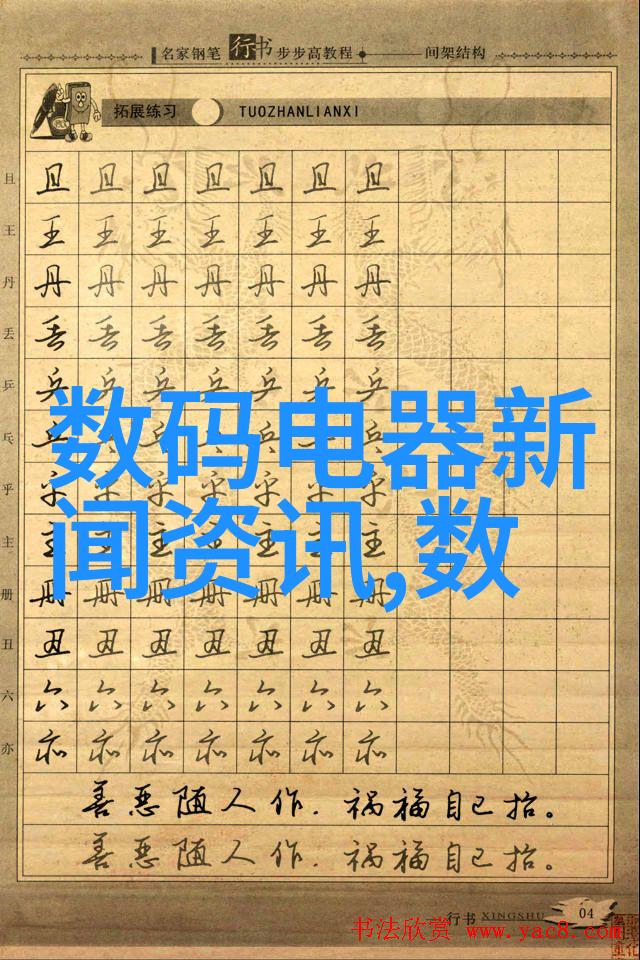 名家钢笔行书步步高教程 间架结构
拓展练习 TUOZHANLIANXI
且 且 且 且 且 且 且 且
王 王 王 王 王 王 王 王
丹 丹 丹 丹 丹 丹 丹 丹
丢 丢 丢 丢 丢 丢 丢 丢
乒 乒 乒 乒 乒 乒 乒 乒
数码电器新
乓 乓 乓 乓 乓 乓 乓 乓
乎 乎 乎 乎 乎 乎 乎 乎
闻资讯,数
主 主 主 主 主 主 主 主
册 册 册 册 册 册 册 册
丑 丑 丑 丑 丑 丑 丑 丑
六 六 六 六 六 六 六 六
亦 亦 亦 亦 亦 亦 亦 亦
善恶随人作，祸福自己招。
善恶随人作，祸福自己招。
行书 XINGSHU 04
书法欣赏 www.yac8.com